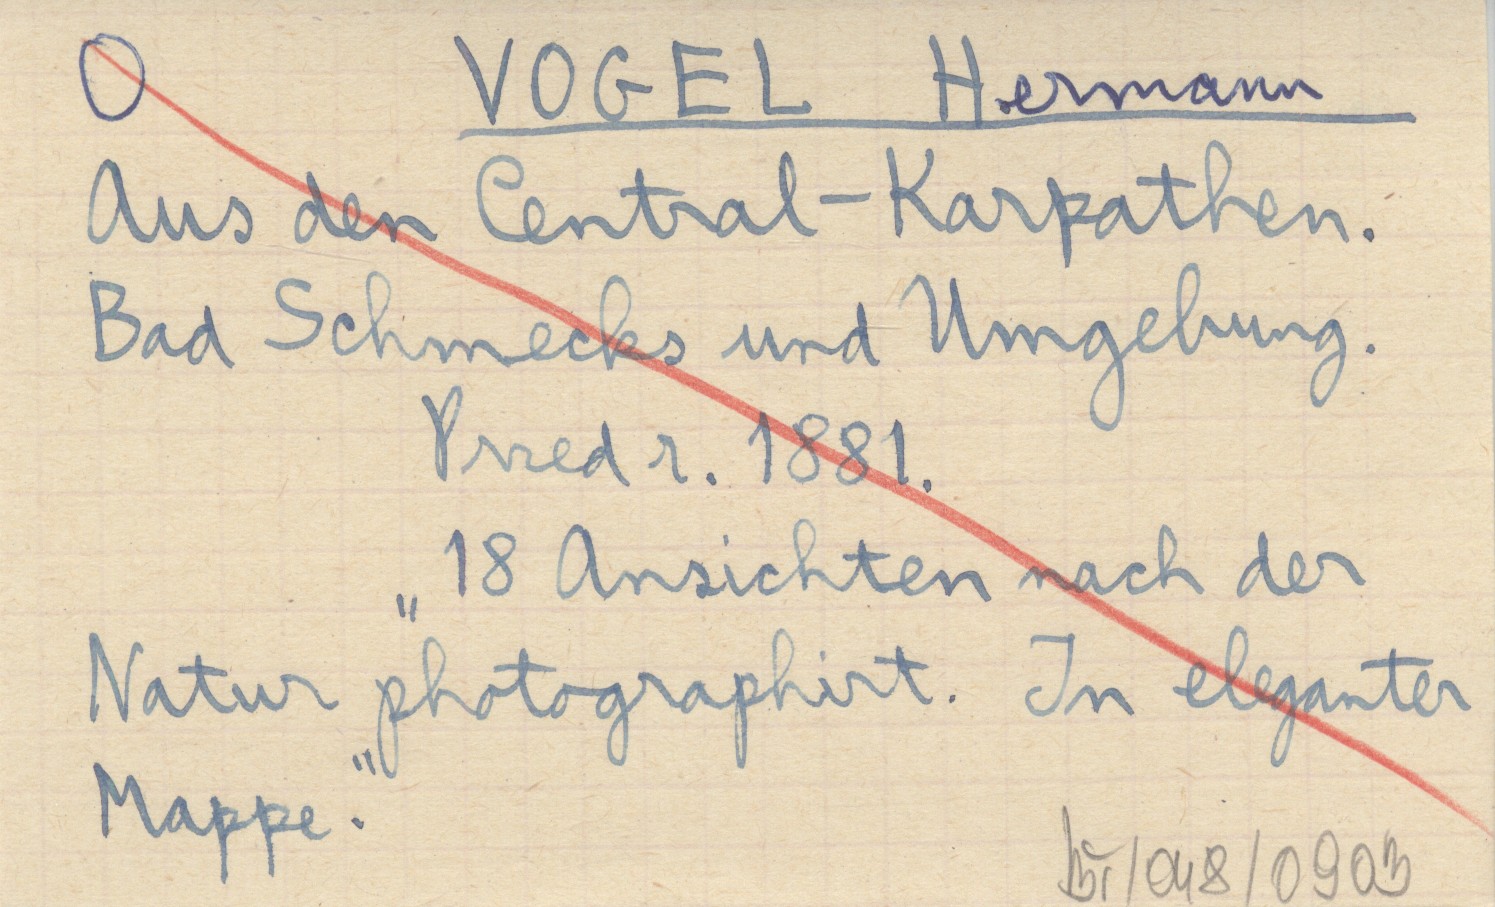 O VOGEL Hermann
Aus den Central-Karpathen.
Bad Schmecks und Umgebung.
Przed r. 1881.
„18 Ansichten nach der
Natur photographirt. In eleganter
Mappe."
/048/0903